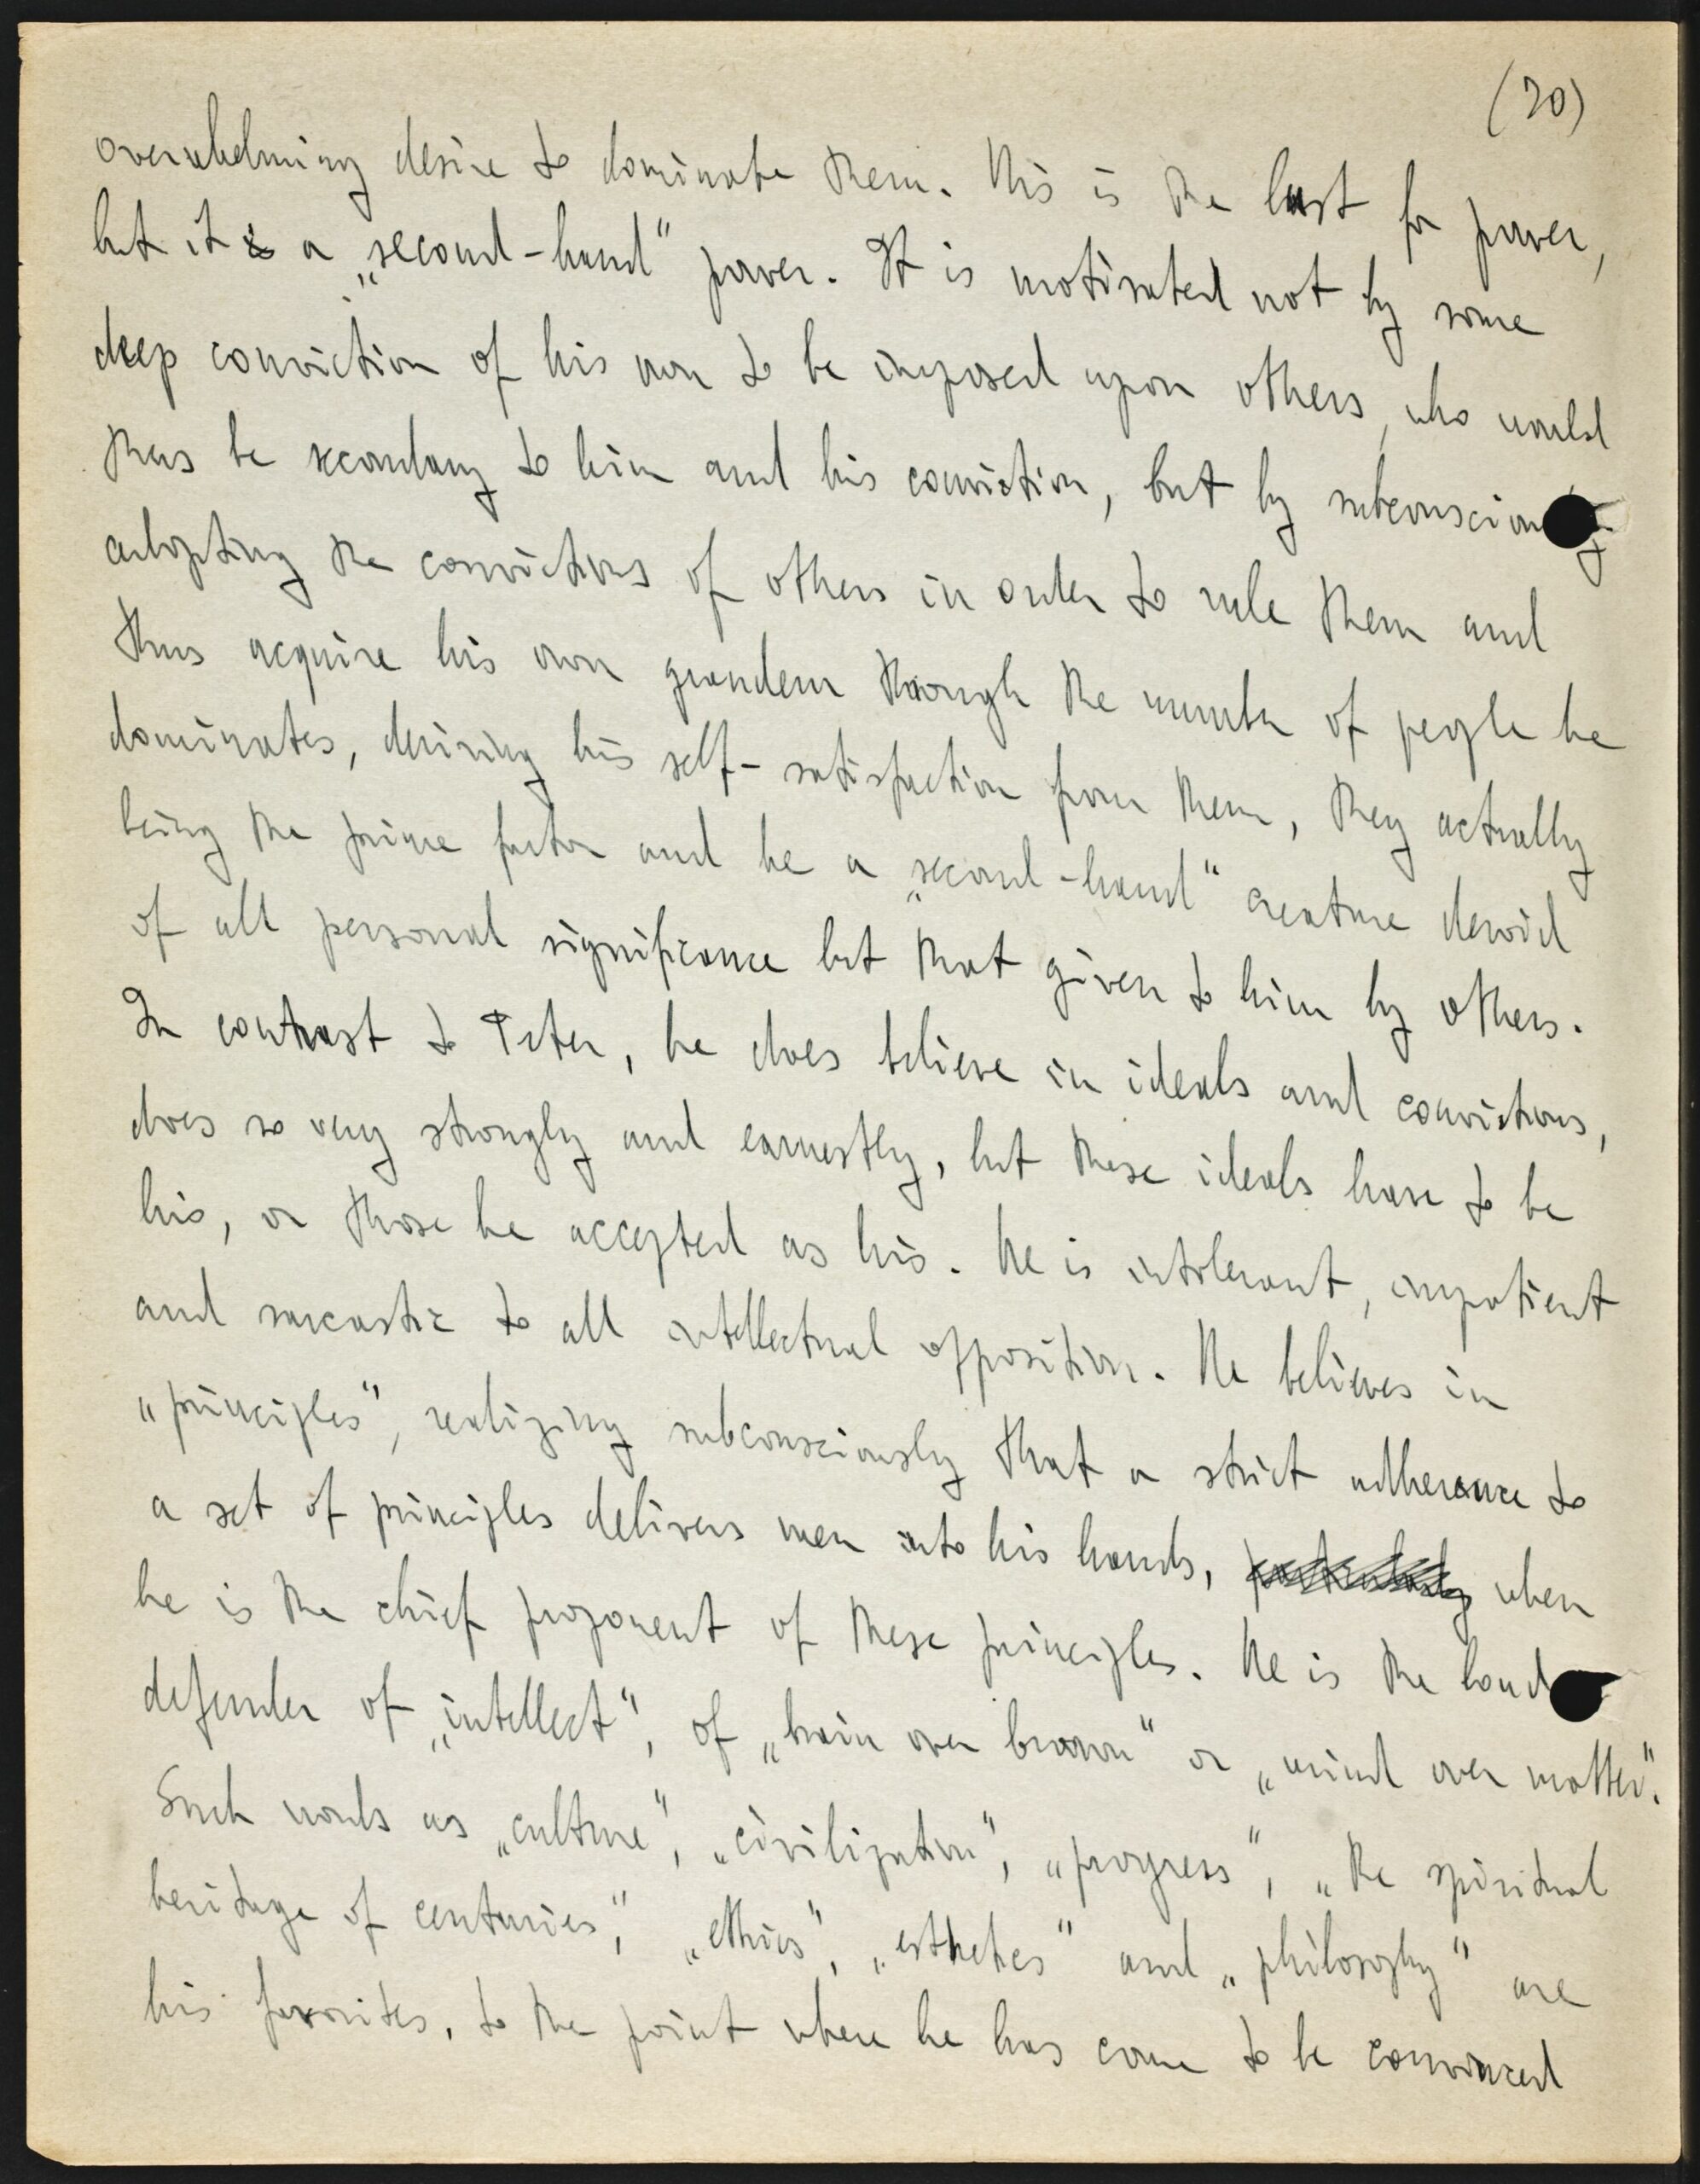 (20)
overwhelming desire to dominate them. This is the lust for power,
but it is a „second-hand" power. It is motivated not by some
deep conviction of his own to be imposed upon others, who would
thus be secondary to him and his conviction, but by subconsciously
adopting the convictions of others in order to rule them and
thus acquire his own grandeur through the number of people he
dominates, deriving his self-satisfaction from them, they actually
being the prime factor and he a „second-hand" creature devoid
of all personal significance but that given to him by others.
In contrast to Peter, he does believe in ideals and convictions,
does so very strongly and earnestly, but these ideals have to be
his, or those he accepted as his. He is intolerant, impatient
and sarcastic to all intellectual opposition. He believes in
„principles", realizing subconsciously that a strict adherence to
a set of principles delivers men into his hands, when
he is the chief proponent of these principles. He is the loud
defender of „intellect", of „brain over brawn" or „mind over matter".
Such words as „culture", „civilization", „progress", „the spiritual
heritage of centuries", „ethics", „esthetics" and „philosophy" are
his favorites, to the point where he has come to be convinced